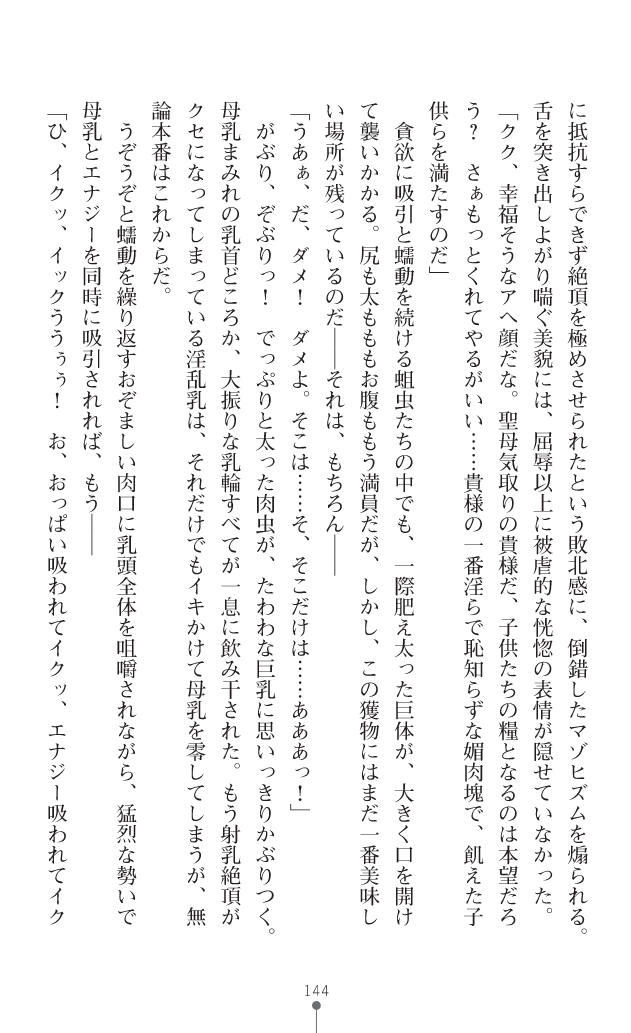 に抵抗すらできず絶頂を極めさせられたという敗北感に、倒錯したマゾヒズムを煽られる。
舌を突き出しよがり喘ぐ美貌には、屈辱以上に被虐的な恍惚の表情が隠せていなかった。
「クク、幸福そうなアヘ顔だな。聖母気取りの貴様だ、子供たちの糧となるのは本望だろ
う？　さぁもっとくれてやるがいい……貴様の一番淫らで恥知らずな媚肉塊で、飢えた子
供らを満たすのだ」
　貪欲に吸引と蠕動を続ける蛆虫たちの中でも、一際肥え太った巨体が、大きく口を開け
て襲いかかる。尻も太ももお腹ももう満員だが、しかし、この獲物にはまだ一番美味し
い場所が残っているのだ――それは、もちろん――
「うあぁ、だ、ダメ！　ダメよ。そこは……そ、そこだけは……あああっ！」
　がぶり、ぞぶりっ！　でっぷりと太った肉虫が、たわわな巨乳に思いっきりかぶりつく。
母乳まみれの乳首どころか、大振りな乳輪すべてが一息に飲み干された。もう射乳絶頂が
クセになってしまっている淫乱乳は、それだけでもイキかけて母乳を零してしまうが、無
論本番はこれからだ。
　うぞうぞと蠕動を繰り返すおぞましい肉口に乳頭全体を咀嚼されながら、猛烈な勢いで
母乳とエナジーを同時に吸引されれば、もう――
「ひ、イクッ、イックううぅぅ！　お、おっぱい吸われてイクッ、エナジー吸われてイク
144